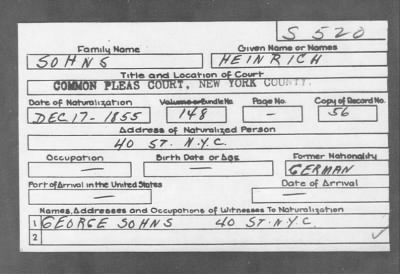 S 520
Family Name Given Name or Names
SOHNS HEINRICH
Title and Location of Court
COMMON PLEAS COURT, NEW YORK COUNTY.
Date of Naturalization Volume or Bundle No. Page No. Copy of Record No.
DEC. 17 - 1855 148 — 56
Address of Naturalized Person
40 ST. N.Y.C.
Occupation Birth Date or Age Former Nationality
— — GERMAN
Port of Arrival in the United States Date of Arrival
— —
Names, Addresses and Occupations of Witnesses To Naturalization
1 GEORGE SOHNS 40 ST. N.Y.C.
2